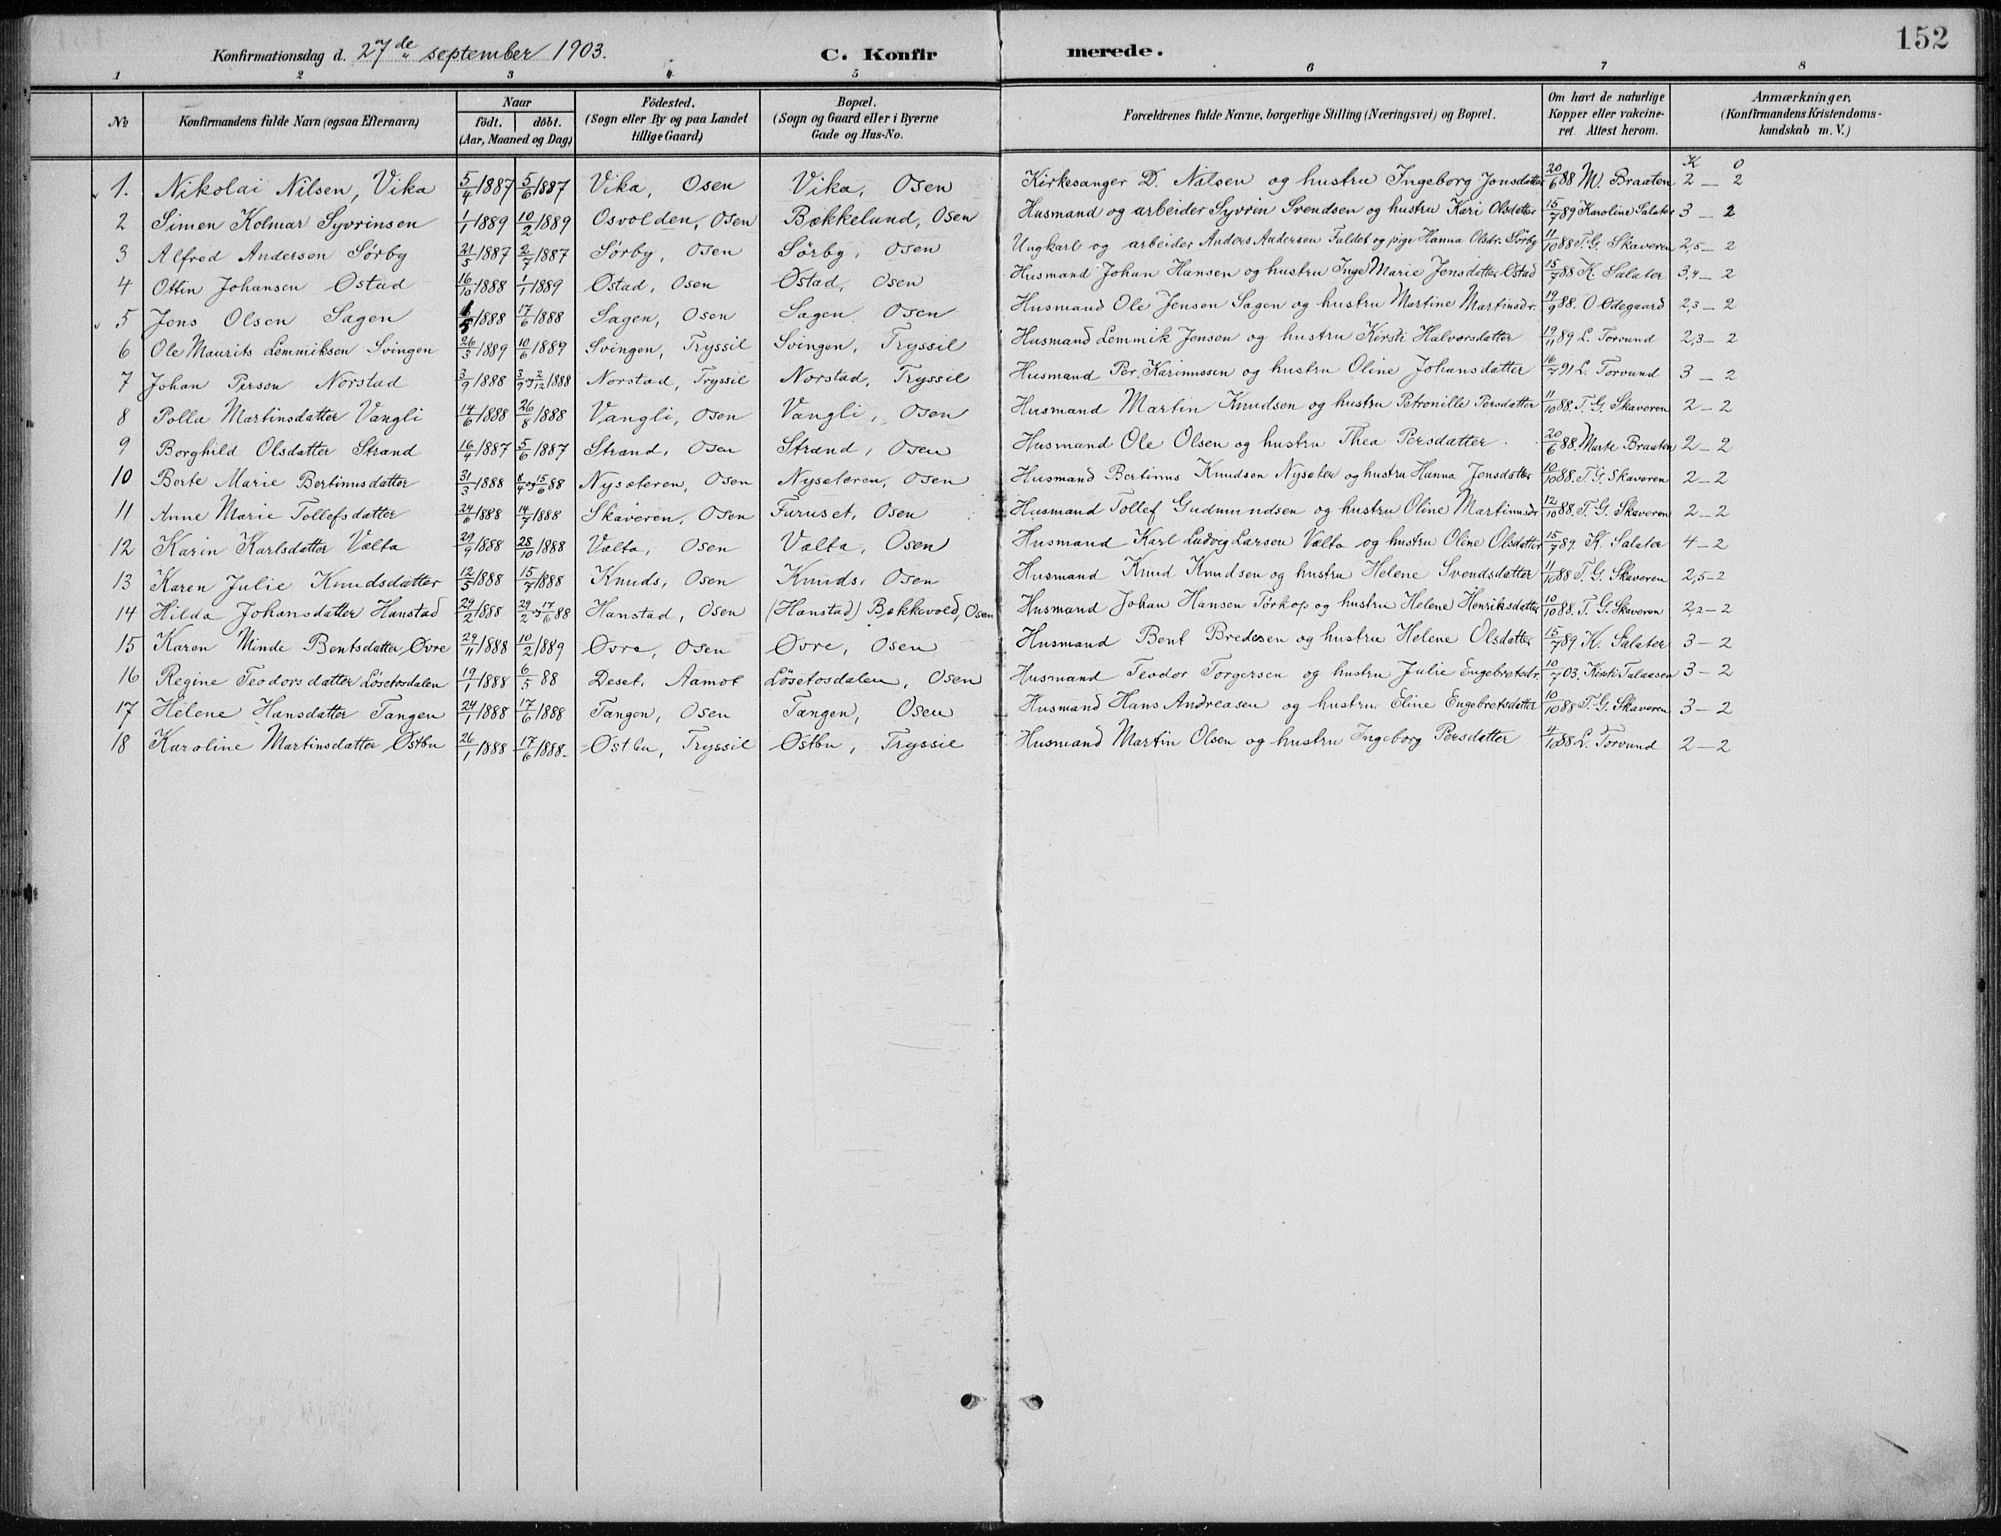 152
Konfirmationsdag d. 27de september 1903. C. Konfirmerede.
1 2 3 4 5 6 7 8
№ Konfirmandens fulde Navn (ogsaa Efternavn) Naar født, døbt. (Aar, Maaned og Dag) Födested. (Sogn eller By og paa Landet tillige Gaard) Bopæl. (Sogn og Gaard eller i Byerne Gade og Hus-No. Forældrenes fulde Navne, borgerlige Stilling (Næringsvei) og Bopæl. Om havt de naturlige Kopper eller vakcineret. Attest herom. Anmærkninger. (Konfirmandens Kristendomskundskab m. V.)
K O
1. Nikolai Nilsen, Vika 5/4 1887 5/6 1887 Vika, Osen Vika, Osen Kirkesanger D. Nilsen og hustru Ingeborg Jonsdatter 20/6 88 M. Braaten 2 – 2
2 Simen Kolmar Syvrinsen 1/1 1889 10/2 1889 Osvolden, Osen Bækkelund, Osen Husmand og arbeider Syvrin Svendsen og hustru Kari Olsdatter 15/7 89 Karoline Salater 3 – 2
3 Alfred Andersen Sørby 21/5 1887 2/7 1887 Sørby, Osen Sørby, Osen Ungkarl og arbeider Anders Andersen Faldet og pige Hanna Olsdr. Sørby 11/10 88 T. G. Skaveren 2,5 – 2
4 Ottin Johansen Østad 16/10 1888 1/1 1889 Østad, Osen Østad, Osen Husmand Johan Hansen og hustru Inge Marie Jonsdatter Østad 15/7 88 K. Salater 3,4 – 2
5 Jens Olsen Sagen 1/5 1888 17/6 1888 Sagen, Osen Sagen, Osen Husmand Ole Jensen Sagen og hustru Martine Martinsdr. 19/9 88. O Ødegaard 2,3 – 2
6 Ole Maurits Lemmiksen Svingen 26/3 1889 10/6 1889 Svingen, Tryssil Svingen, Tryssil Husmand Lemmik Jensen og hustru Kirsti Halvorsdatter 19/11 89 L. Torvund 2,3 – 2
7 Johan Persen Norstad 3/9 1888 3/9 og 2/12 1888 Norstad, Tryssil Norstad, Tryssil Husmand Per. Karinussen og hustru Oline Johansdatter 16/7 91 L. Torvund 3 – 2
8 Polla Martinsdatter Vangli 14/6 1888 26/8 1888 Vangli, Osen Vangli, Osen Husmand Martin Knudsen og hustru Petronille Persdatter 11/10 88. T. G. Skaveren 2 – 2
9 Borghild Olsdatter Strand 16/4 1887 5/6 1887 Strand, Osen Strand, Osen Husmand Ole Olsen og hustru Thea Persdatter. 20/6 88. Marte Braaten 2 – 2
10 Berte Marie Bertinusdatter 31/3 1888 8/4 og 15/6 88 Nysæteren, Osen Nyseteren, Osen Husmand Bertinus Knudsen Nyseter og hustru Hanna Jensdatter 10/10 88. T. G. Skaveren 2 – 2
11 Anne Marie Tollefsdatter 24/6 1888 14/7 1888 Skaveren, Osen Furuset, Osen Husmand Tollef Gudmundsen og hustru Oline Martinusdr 12/10 88. T. G. Skaveren 2 – 2
12 Karin Karlsdatter Vælta 29/9 1888 28/10 1888 Vælta, Osen Vælta, Osen Husmand Karl Ludvig Larsen Vælta og hustru Oline Olsdatter 15/7 89. K. Salater 4 – 2
13 Karen Julie Knudsdatter 12/5 1888 15/7 1888 Knuds, Osen Knuds, Osen Husmand Knud Knudsen og hustru Helene Svendsdatter 11/10 88 T. G. Skaveren 2,5 – 2
14 Hilda Johansdatter Hanstad 29/2 1888 29/2 og 17/6 88 Hanstad, Osen (Hanstad) Bækkevold, Osen Husmand Johan Hansen Tørkop og hustru Helene Henriksdatter 10/10 88. T. G. Skaveren 2,2 – 2
15 Karen Minde Bentsdatter Øvre 29/11 1888 10/2 1889 Øvre, Osen Øvre, Osen Husmand Bent Bredesen og hustru Helene Olsdatter 15/7 89. K. Salater 3 – 2
16 Regine Teodorsdatter Løsetosdalen 19/1 1888 6/5 88 Deset, Aamot Løsetosdalen, Osen Husmand Teodor Torgersen og hustru Julie Engebretsdr. 10/7 03. Kirsti Talaasen 3 – 2
17 Helene Hansdatter Tangen 24/1 1888 17/6 1888 Tangen, Osen Tangen, Osen Husmand Hans Andreasen og hustru Eline Engebretsdatter 10/10 88 T. G. Skaveren 3 – 2
18 Karoline Martinsdatter Østbu 26/1 1888 17/6 1888 Østbu, Tryssil Østbu, Tryssil Husmand Martin Olsen og hustru Ingeborg Persdatter 4/10 88. L. Torvund 2 – 2